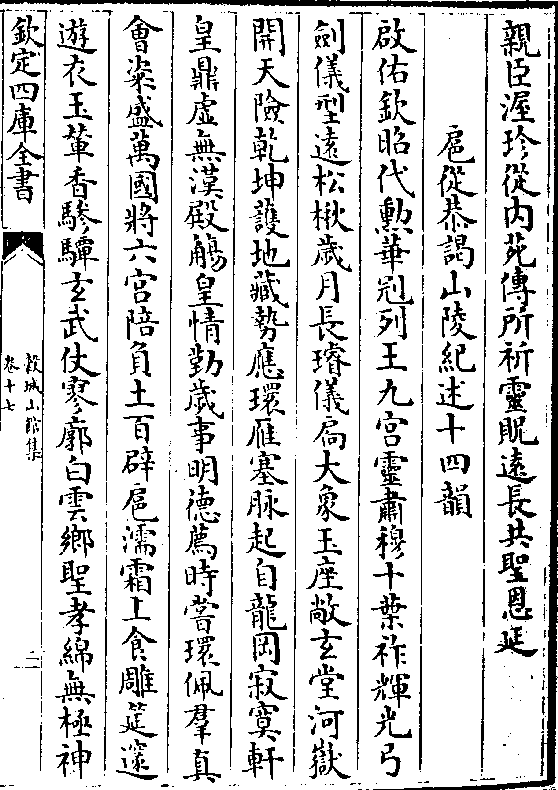 親臣渥珍從内苑傳所祈靈貺遠長共聖恩延
扈從恭謁山陵紀述十四韻
啟佑欽昭代勲華冠列王九宫靈肅穆十葉祚輝光弓
劍儀型遠松楸歲月長璿儀扃大象玉座敞玄堂河嶽
開天險乾坤護地藏勢應環雁塞脉起自龍岡寂寞軒
皇鼎虛無漢殿觴皇情勤歲事明德薦時嘗環佩羣真
會粢盛萬國將六宫陪負土百辟扈濡霜上食雕筵邃
遊衣玉輦香驂驔玄武仗寥廓白雲鄉聖孝綿無極神
欽定四庫全書
榖城山館集
卷十七
二